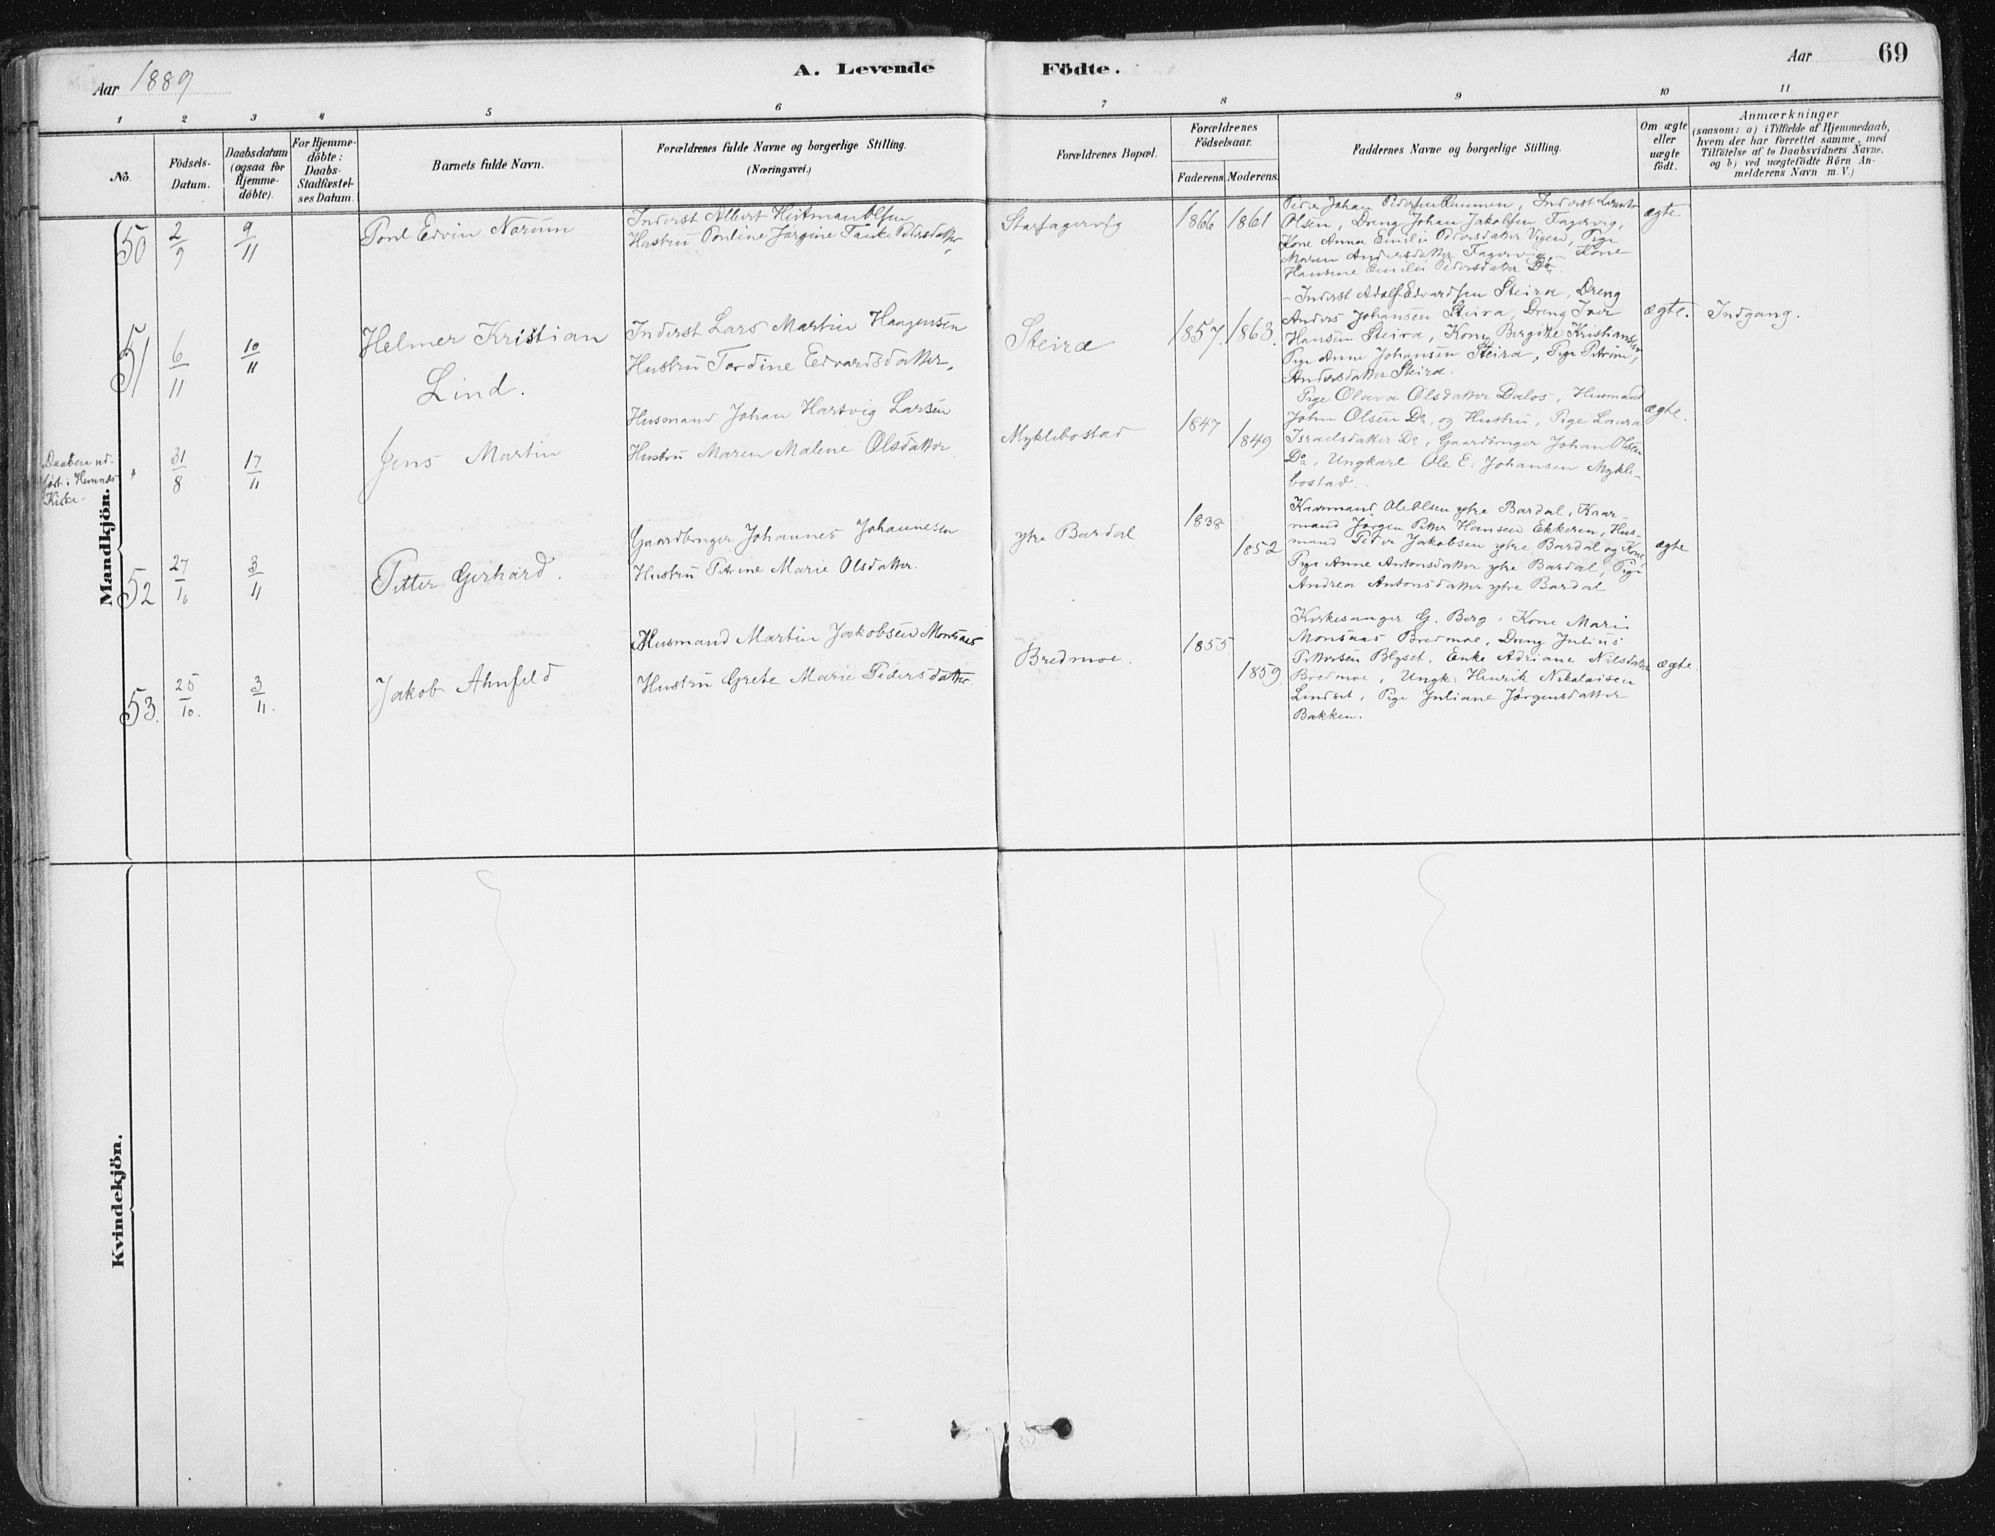 Aar 1889
A. Levende Födte.
Aar
69
1 2 3 4 5 6 7 8 9 10 11
No.
Födsels-Datum.
Daabsdatum (ogsaa för Hjemme-döbte).
For Hjemme-döbte: Daabs-Stadfæstel-ses Datum.
Barnets fulde Navn.
Forældrenes fulde Navne og borgerlige Stilling.
(Næringsvei.)
Forældrenes Bopæl.
Forældrenes Födselsaar.
Faderens. Moderens.
Faddernes Navne og borgerlige Stilling.
Om ægte eller uægte födt.
Anmærkninger
(saasom: a) i Tilfælde af Hjemmedaab,
hvem der har forrettet samme, med
Tilföielse af to Daabsvidners Navne.
og b) ved uægtefödte Börn An-
melderens Navn m. V.)
Mandkjön.
50 2/9 9/11 Poul Edvin Norum
Inderst Albert Heitman Olsen
Hustru Pauline Jørgine Tanke Pedersdatter
1866 1861
Peder Johan Pedersen, Inderst
Olsen, Dreng Johan Jakobsen Fagervig,
Kone Anna Emilie Pedersdatter, Pige
Maren Andersdatter Fagervig, Kone
Hansine Emilie Pedersdatter Do.
ægte.
51 6/11 10/11 Helmer Kristian
Lind.
Inderst Lars Martin Haagensen
Hustru Tordine Edvardsdatter.
Steira
1857. 1863.
Inderst Adolf Edvardsen Steira, Dreng
Anders Johansen Steira, Dreng Iver
Hansen Steira, Kone Bergitte Kristiansen
Pige Anne Johansen Steira, Pige Petrine
Andersdatter Steira.
ægte. Indgang.
Daaben ud-
ført i Hemnes
Kirke.
" 31/8 17/11 Jens Martin
Husmand Johan Hartvig Larsen
Hustru Maren Malene Olsdatter
Myklebostad
1847 1849
Pige Olava Olsdatter Dalos, Husmand
John Olsen Do. og Hustru, Pige Laura
Israelsdatter Do, Gaardbruger Johan Olsen
Do, Ungkarl Ole E. Johansen Mykle-
bostad.
ægte.
52 27/10 3/11 Petter Gerhard.
Gaardbruger Johannes Johannesen
Hustru Petrine Marie Olsdatter.
ytre Bardal
1838 1852
Kaarmand Ole Olsen ytre Bardal, Kaar-
mand Jørgen Petter Hansen Ekkeren, Hus-
mand Peder Jakobsen ytre Bardal og Kone,
Pige Anne Antonsdatter ytre Bardal, Pige
Andrea Antonsdatter ytre Bardal
ægte
53. 25/10. 3/11. Jakob Ahnfeld
Husmand Martin Jakobsen Monsaas
Hustru Grete Marie Pedersdatter
Bredmoe.
1855 1859
Kirkesanger G. Berg, Kone Marie
Monsaas Bredmoe, Dreng Julius
Pettersen Blyset, Enke Adriane Nilsdatter
Bredmoe, Ungk: Henrik Nikolaisen
Lindset, Pige Juliane Jørgensdatter
Bakken.
ægte.
Kvindekjön.